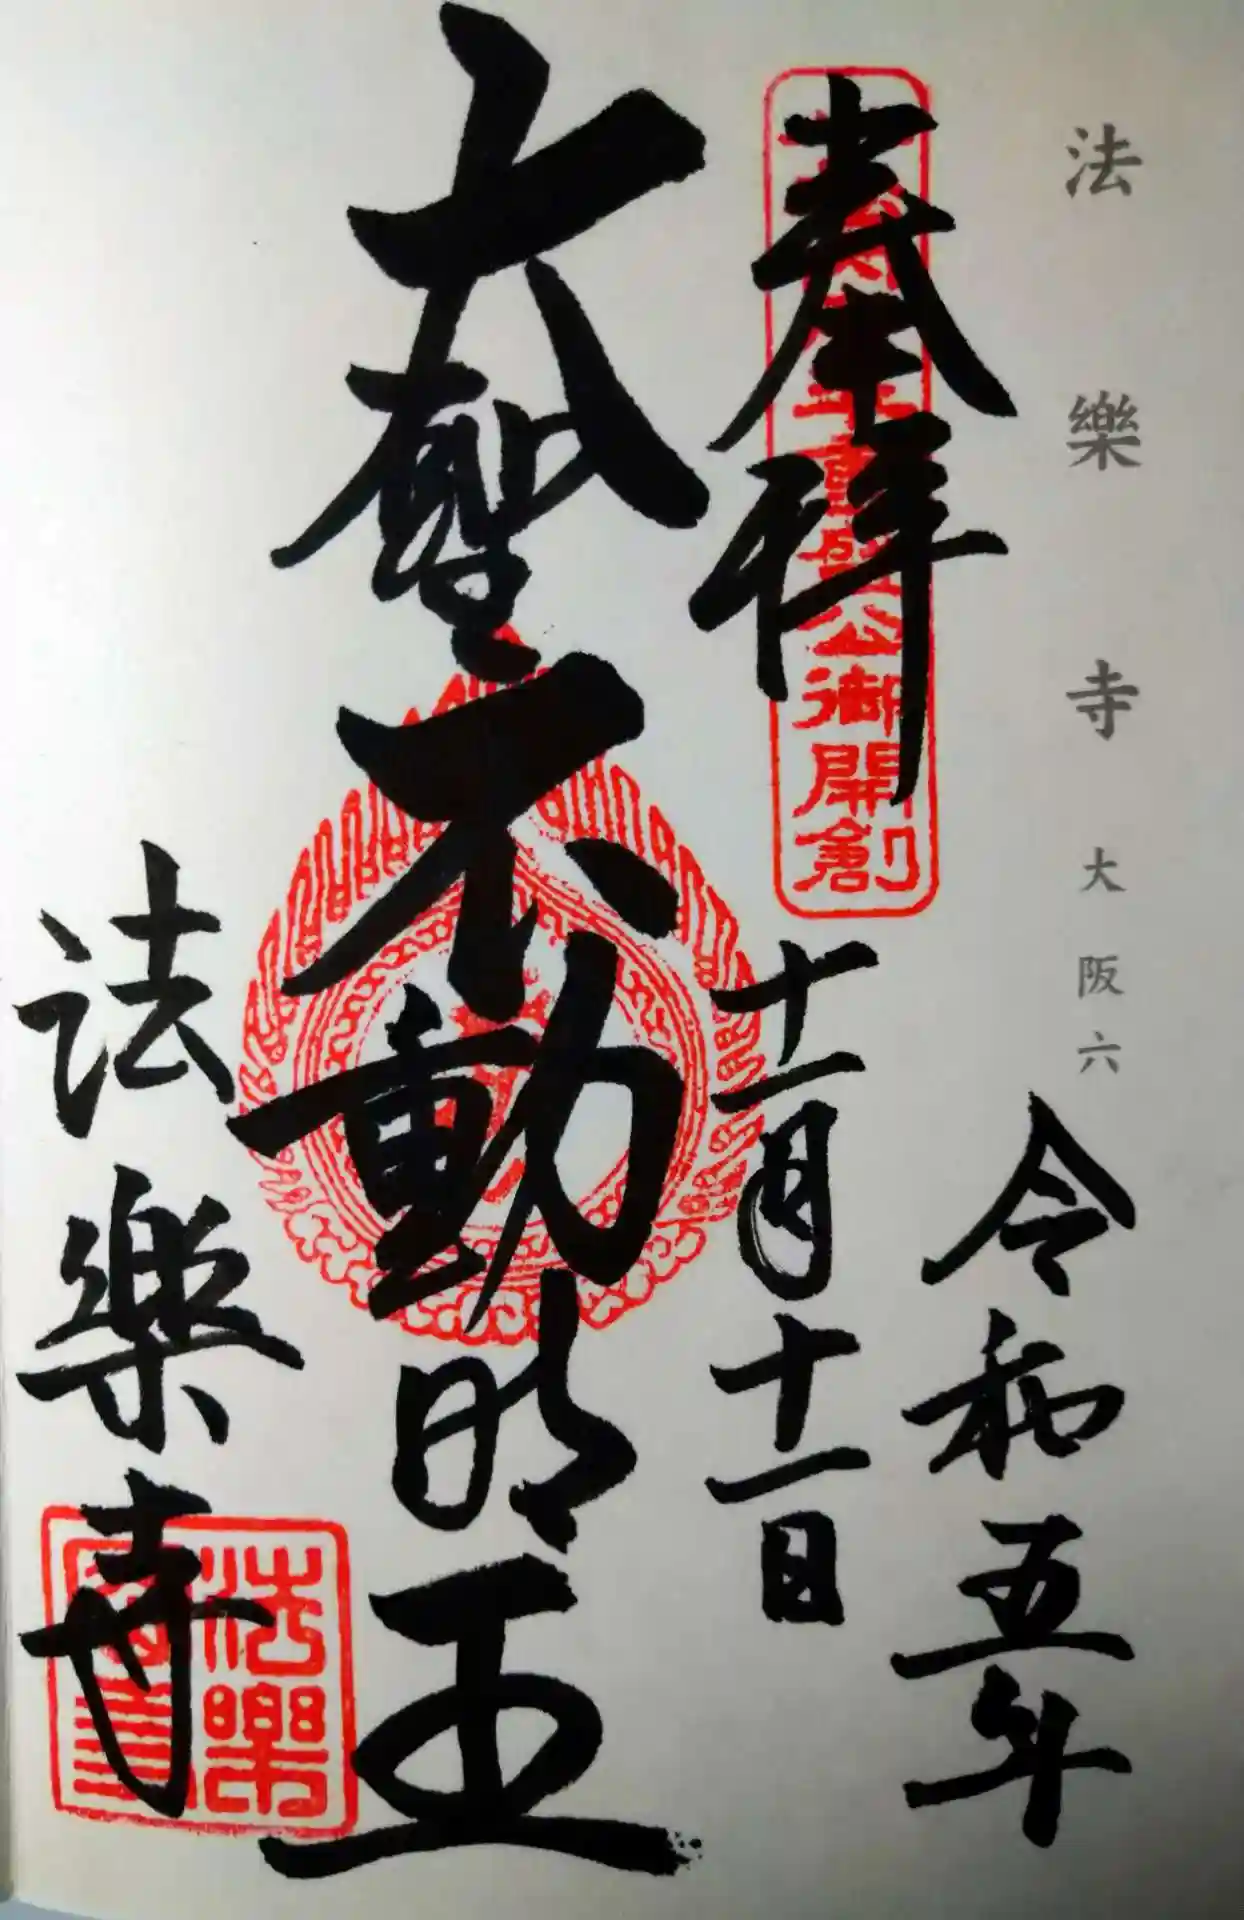 法樂寺 大阪六
奉拝
令和五年
十一月十一日
大聖不動明王
法樂寺
公御開創
法樂